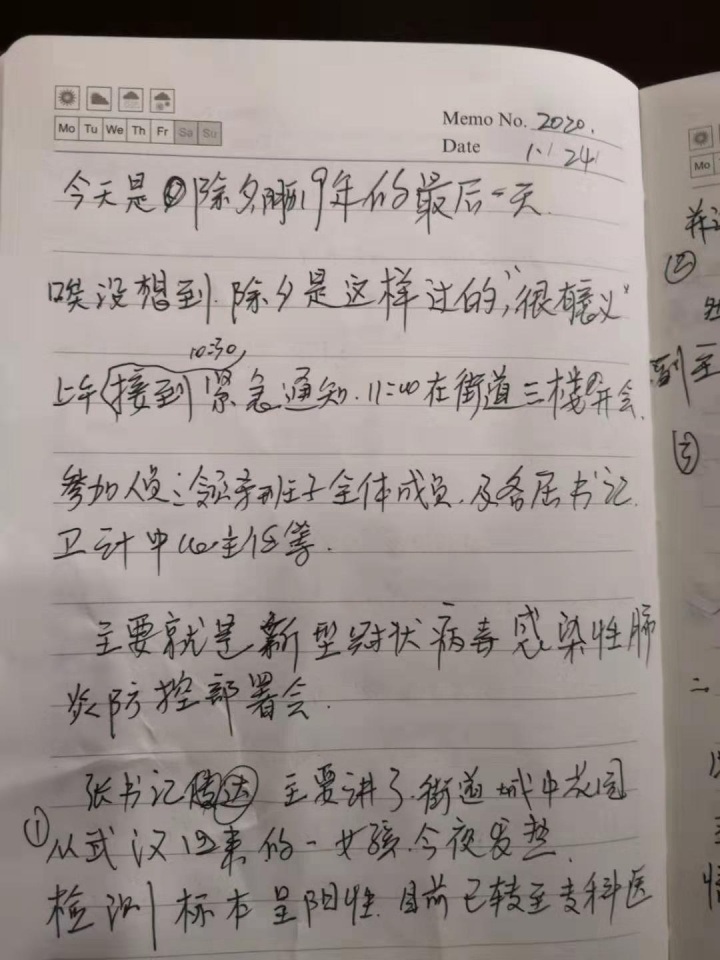 Mo Tu We Th Fr Sa Su
Memo No. 2020.
Date 1.24
今天是除夕,19年的最后一天.
唉没想到.除夕是这样过的,"很有意义"
10:30,
上午接到紧急通知.11:00在街道三楼开会.
参加人员:领导班子全体成员.及各居书记.
卫计中心主任等.
主要就是新型冠状病毒感染性肺
炎防控部署会.
张书记传达 主要讲了.街道城中花园
① 从武汉回来的一女孩.今夜发热.
检测标本呈阳性.目前已转至专科医
Mo
②
到至
③
二